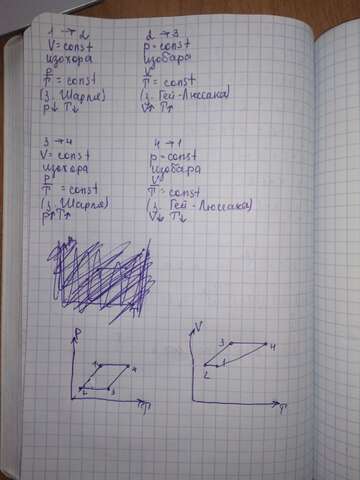 1 → 2
V = const
изохора
P
T = const
(з. Шарля)
p↓ T↓
2 → 3
p = const
изобара
V
T = const
(з. Гей-Люссака)
V↑ T↑
3 → 4
V = const
изохора
P
T = const
(з. Шарля)
p↑ T↑
4 → 1
p = const
изобара
V
T = const
(з. Гей-Люссака)
V↓ T↓
P
1
4
2
3
T
V
3
4
2
1
T